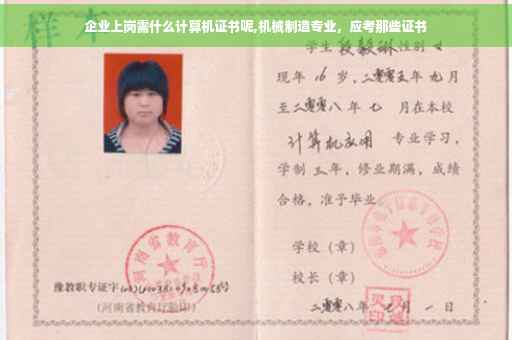 企业上岗需什么计算机证书呢,机械制造专业，应考那些证书
样本
学生段毅琳性别女
现年16岁，二零零五年九月
至二零零八年七月在本校
计算机应用 专业学习，
学制三年，修业期满，成绩
合格，准予毕业。
学校（章）
校长（章）
二零零八年七月一日
河南省教育厅
豫教职专证字
（河南省教育厅验印）